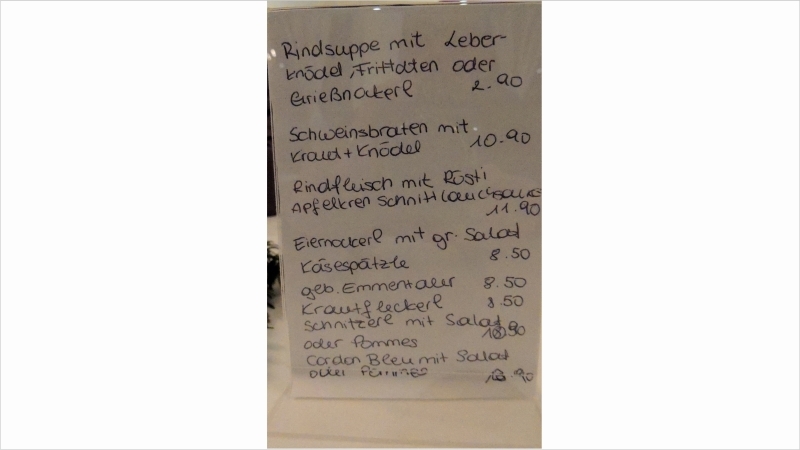 Rindsuppe mit Leber-
knödel, Frittaten oder
Grießnockerl 2.90
Schweinsbraten mit
Kraut + Knödel 10.90
Rindfleisch mit Rösti
Apfelkren Schnittlauchsauce
11.90
Eiernockerl mit gr. Salat
8.50
Käsespätzle
geb. Emmentaler 8.50
Krautfleckerl 8.50
Schnitzerl mit Salat
oder Pommes
Cordon Bleu mit Salat
oder Pommes